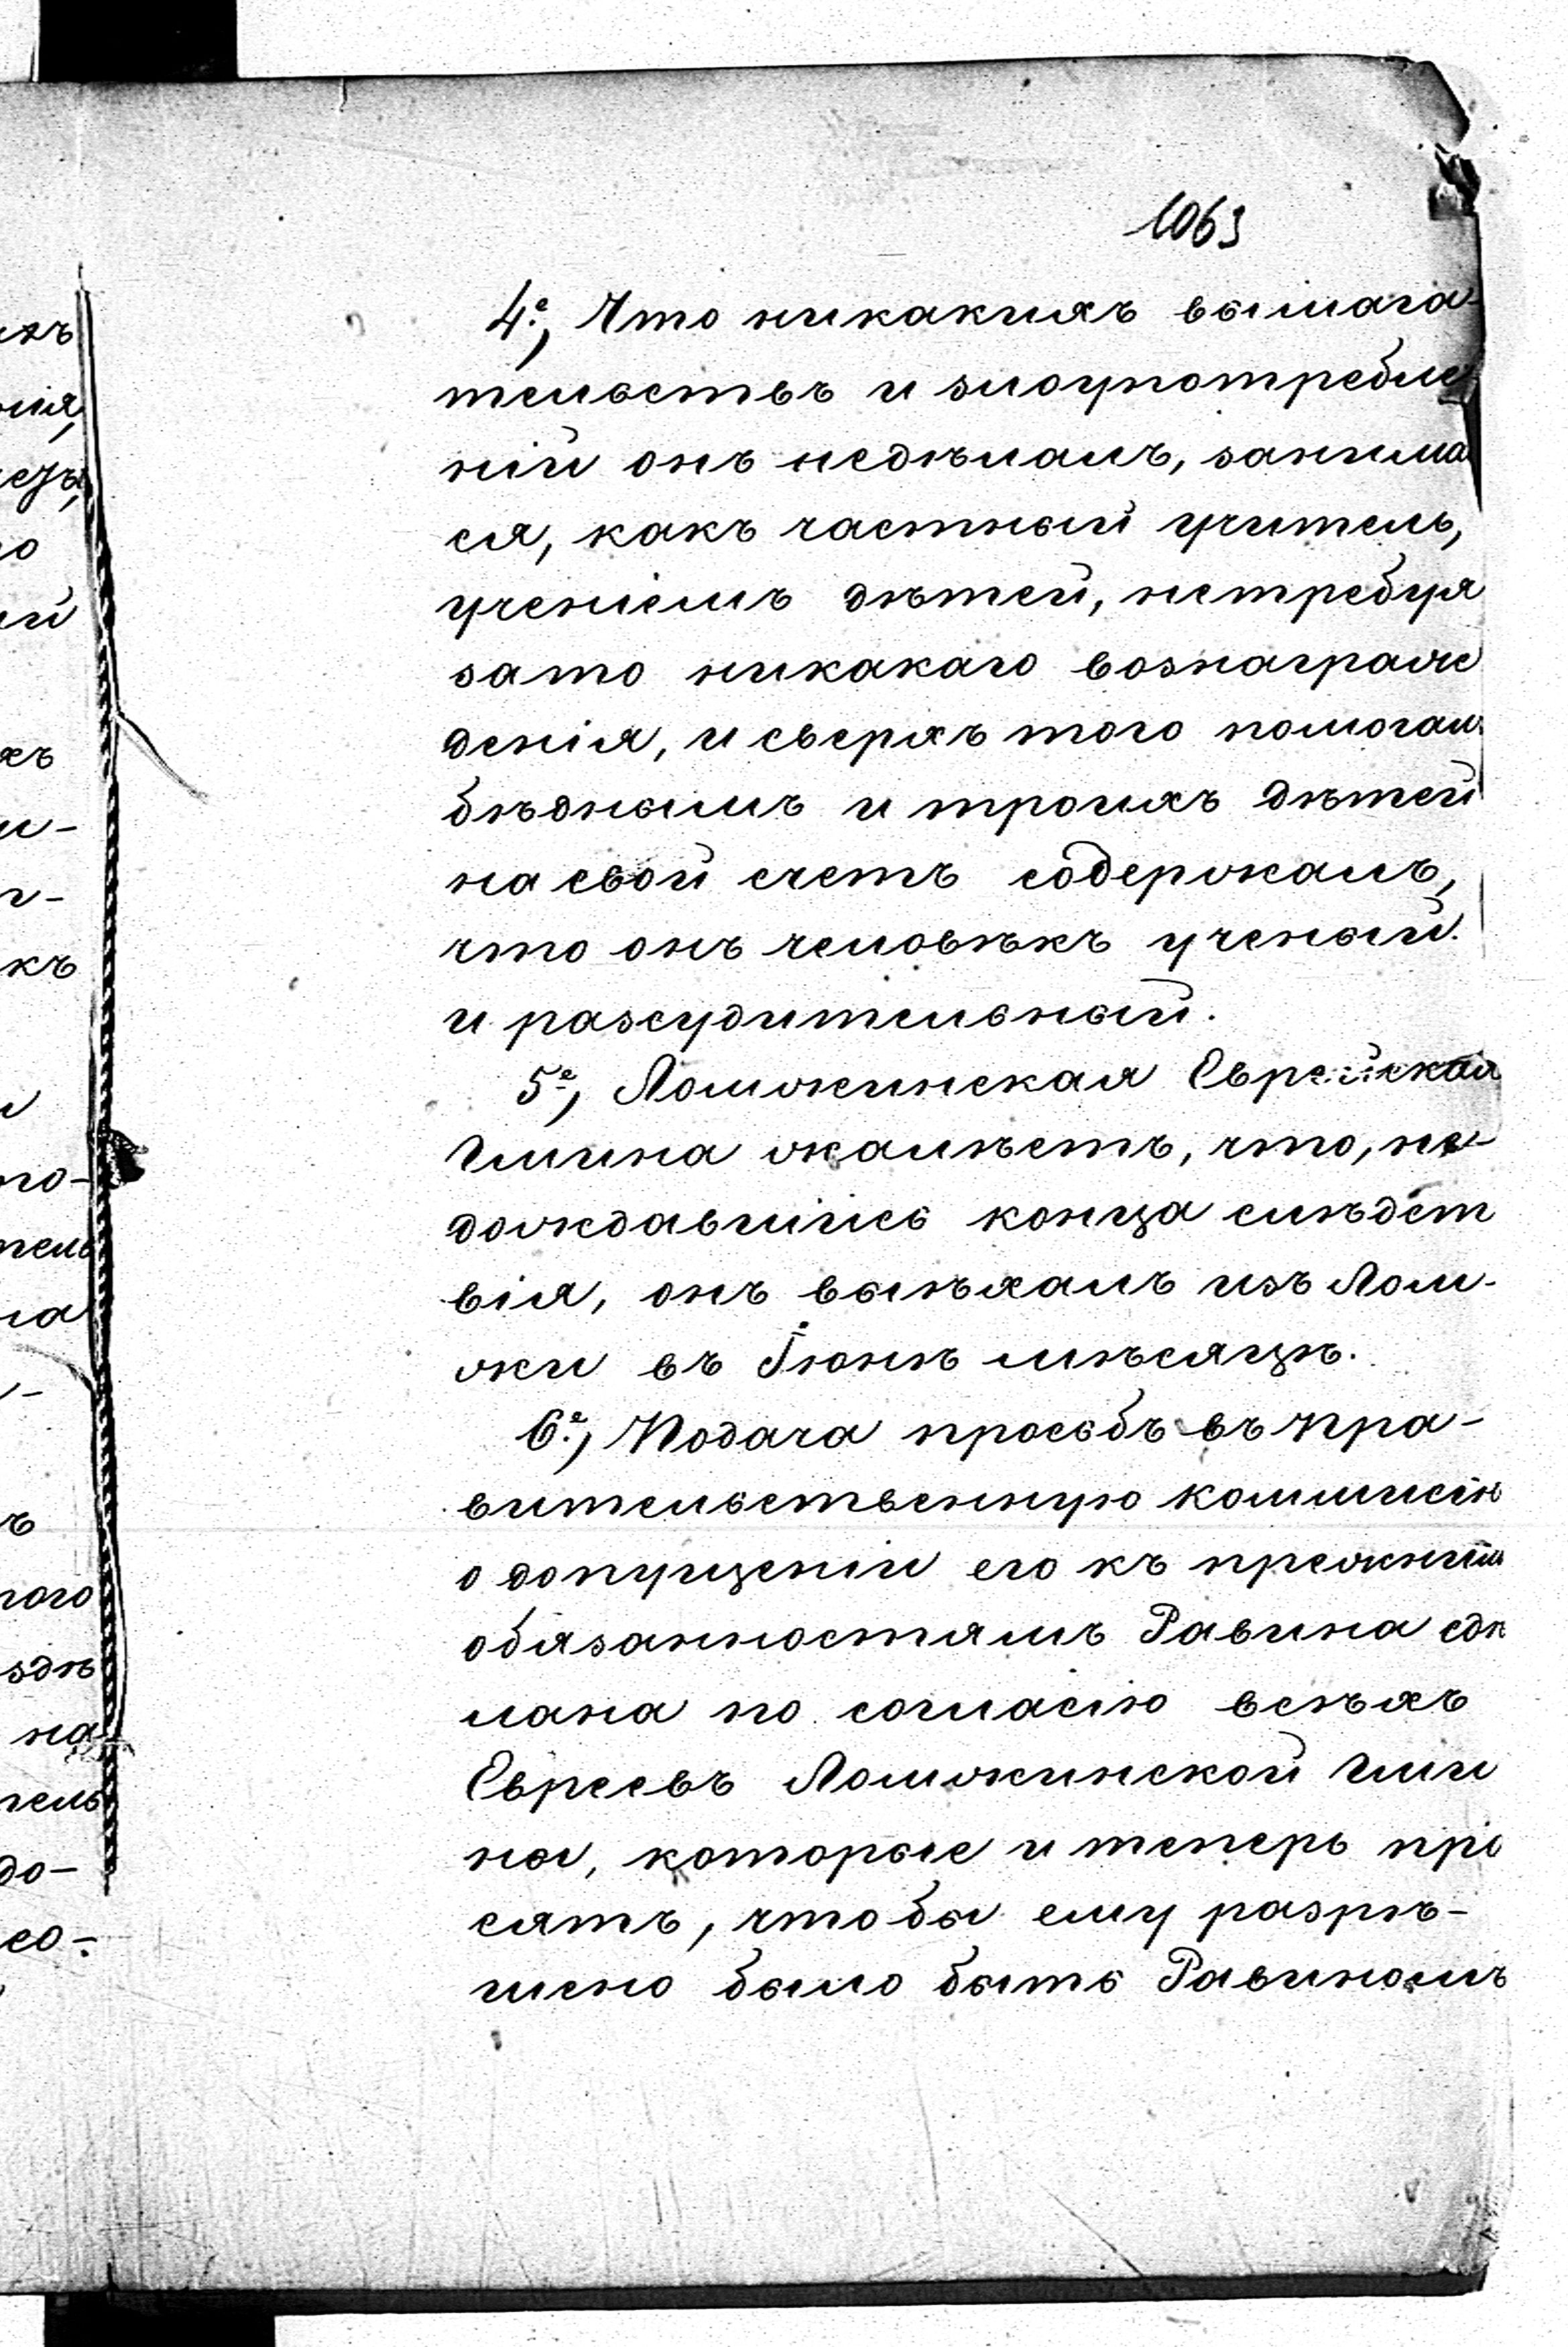 1063
4е, Что никакихъ вымага-
тельствъ и злоупотребле
ній онъ недѣлалъ, занима
ся, какъ частный учитель,
ученіемъ дѣтей, нетребуя
зато никакаго вознаграж
денія, и сверхъ того помогалъ
бѣднымъ и троихъ дѣтей
на свой счетъ содержалъ,
что онъ человѣкъ ученый
и разсудительный.
5е, Ломжинская Еврейская
Гмина жалѣетъ, что, не-
дождавшись конца слѣдст
вія, онъ выѣхалъ изъ Лом-
жи въ Іюнѣ мѣсяцѣ.
6е, Подача просьбъ въ Пра-
вительственную коммисію
о допущеніи его къ прежнимъ
обязанностямъ Равина сдѣ
лана по согласію всѣхъ
Евреевъ Ломжинской Гми
ны, которые и теперь про
сятъ, чтобы ему разрѣ-
шено было быть Равиномъ